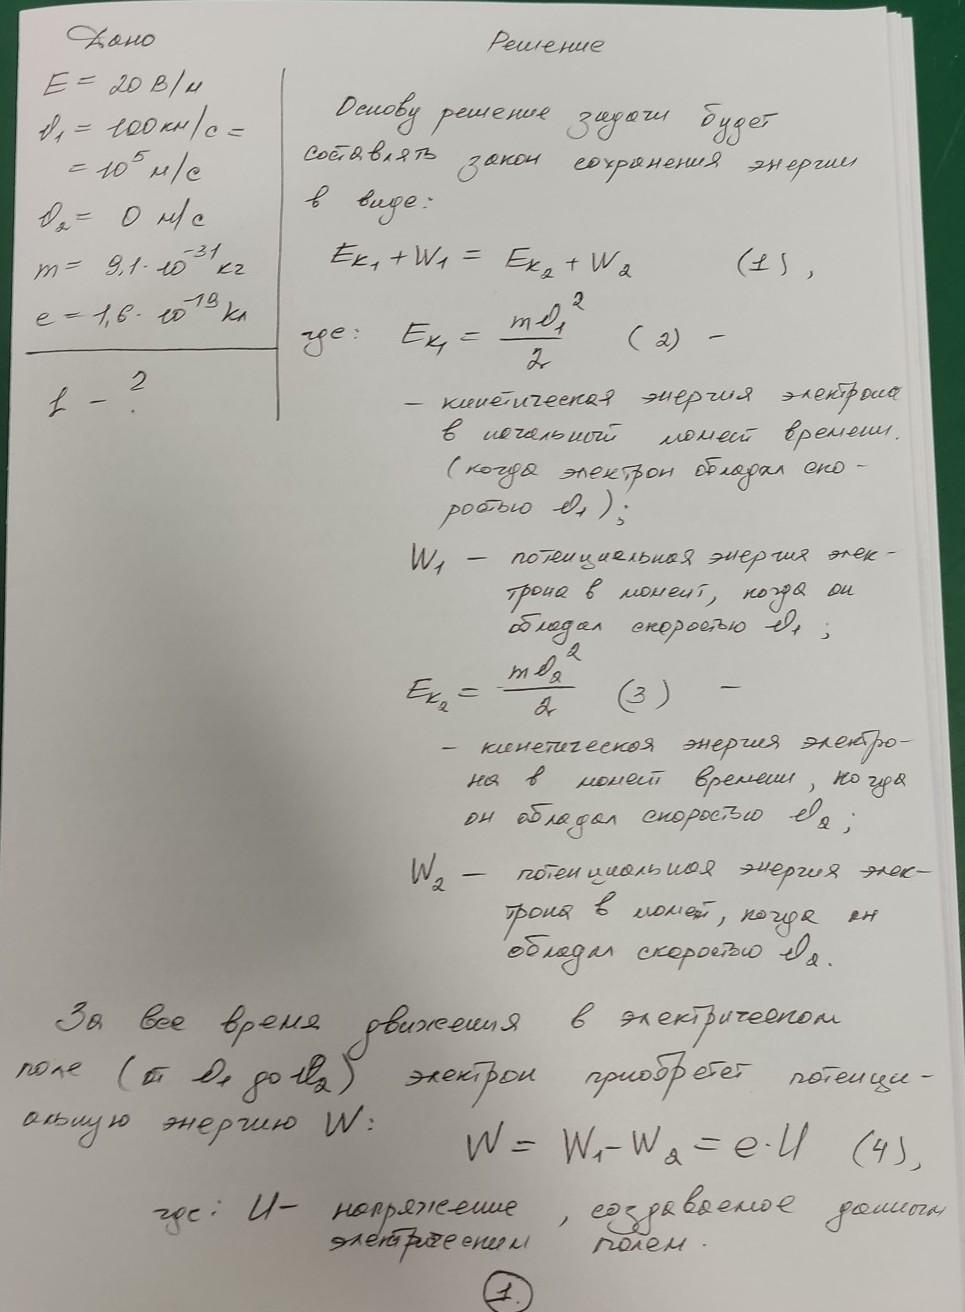 Дано
E = 20 В/м
υ₁ = 100 км/с =
= 10⁵ м/с
υ₂ = 0 м/с
m = 9,1 · 10⁻³¹ кг
e = 1,6 · 10⁻¹⁹ Кл
l - ?
Решение
Основу решение задачи будет
составлять закон сохранения энергии
в виде:
Eк₁ + W₁ = Eк₂ + W₂ (1),
где: Eк₁ = mυ₁²/2 (2) -
- кинетическая энергия электрона
в начальный момент времени.
(когда электрон обладал ско-
ростью υ₁);
W₁ - потенциальная энергия элек-
трона в момент, когда он
обладал скоростью υ₁;
Eк₂ = mυ₂²/2 (3) -
- кинетическая энергия электро-
на в момент времени, когда
он обладал скоростью υ₂;
W₂ - потенциальная энергия элек-
трона в момент, когда он
обладал скоростью υ₂.
За все время движения в электрическом
поле (от υ₁ до υ₂) электрон приобретет потенци-
альную энергию W:
W = W₁ - W₂ = e · U (4),
где: U - напряжение, создаваемое данным
электрическим полем.
1.